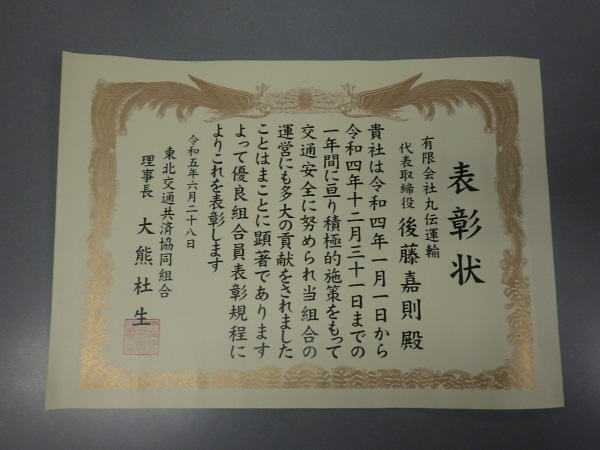 表彰状
有限会社丸伝運輸
代表取締役 後藤嘉則殿
貴社は令和四年一月一日から
令和四年十二月三十一日までの
一年間に亘り積極的施策をもって
交通安全に努められ当組合の
運営にも多大の貢献をされました
ことはまことに顕著であります
よって優良組合員表彰規程に
よりこれを表彰します
令和五年六月二十八日
東北交通共済協同組合
理事長 大熊杜生